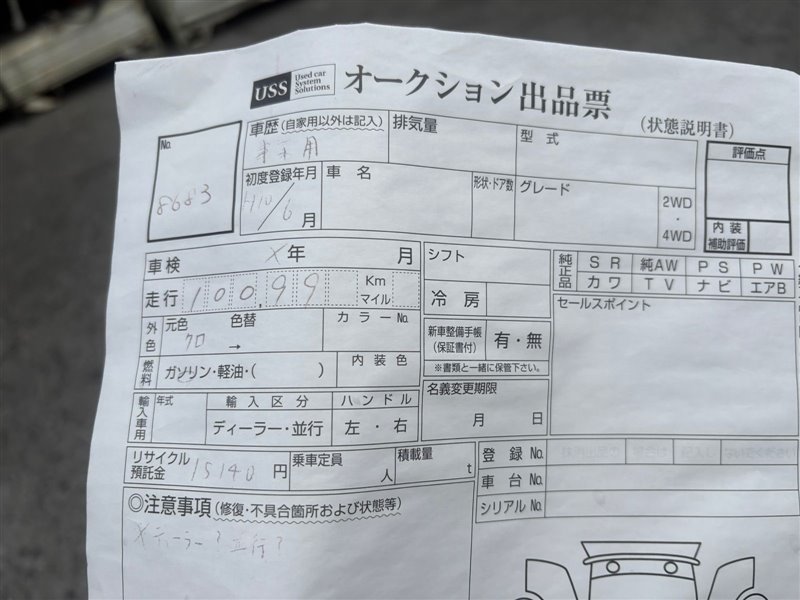 USS Used car System Solutions オークション出品票 (状態説明書)
No. 8683
車歴 (自家用以外は記入) 排気量 型式 評価点
初度登録年月 車名 形状・ドア数 グレード 2WD・4WD
H10/6月 内装補助評価
車検 X年 月 シフト 純正品 SR 純AW PS PW
走行 100,999 Km マイル 冷房 カワ TV ナビ エアB
外色 元色 色替 カラーNo. セールスポイント
クロ → 新車整備手帳(保証書付) 有・無
燃料 ガソリン・軽油・( ) 内装色 ※書類と一緒に保管下さい。
輸入車用 年式 輸入区分 ハンドル 名義変更期限
ディーラー・並行 左・右 月 日
リサイクル預託金 15140円 乗車定員 人 積載量 t 登録No.
車台No.
◎注意事項 (修復・不具合箇所および状態等) シリアルNo.
Xディーラー?並行?